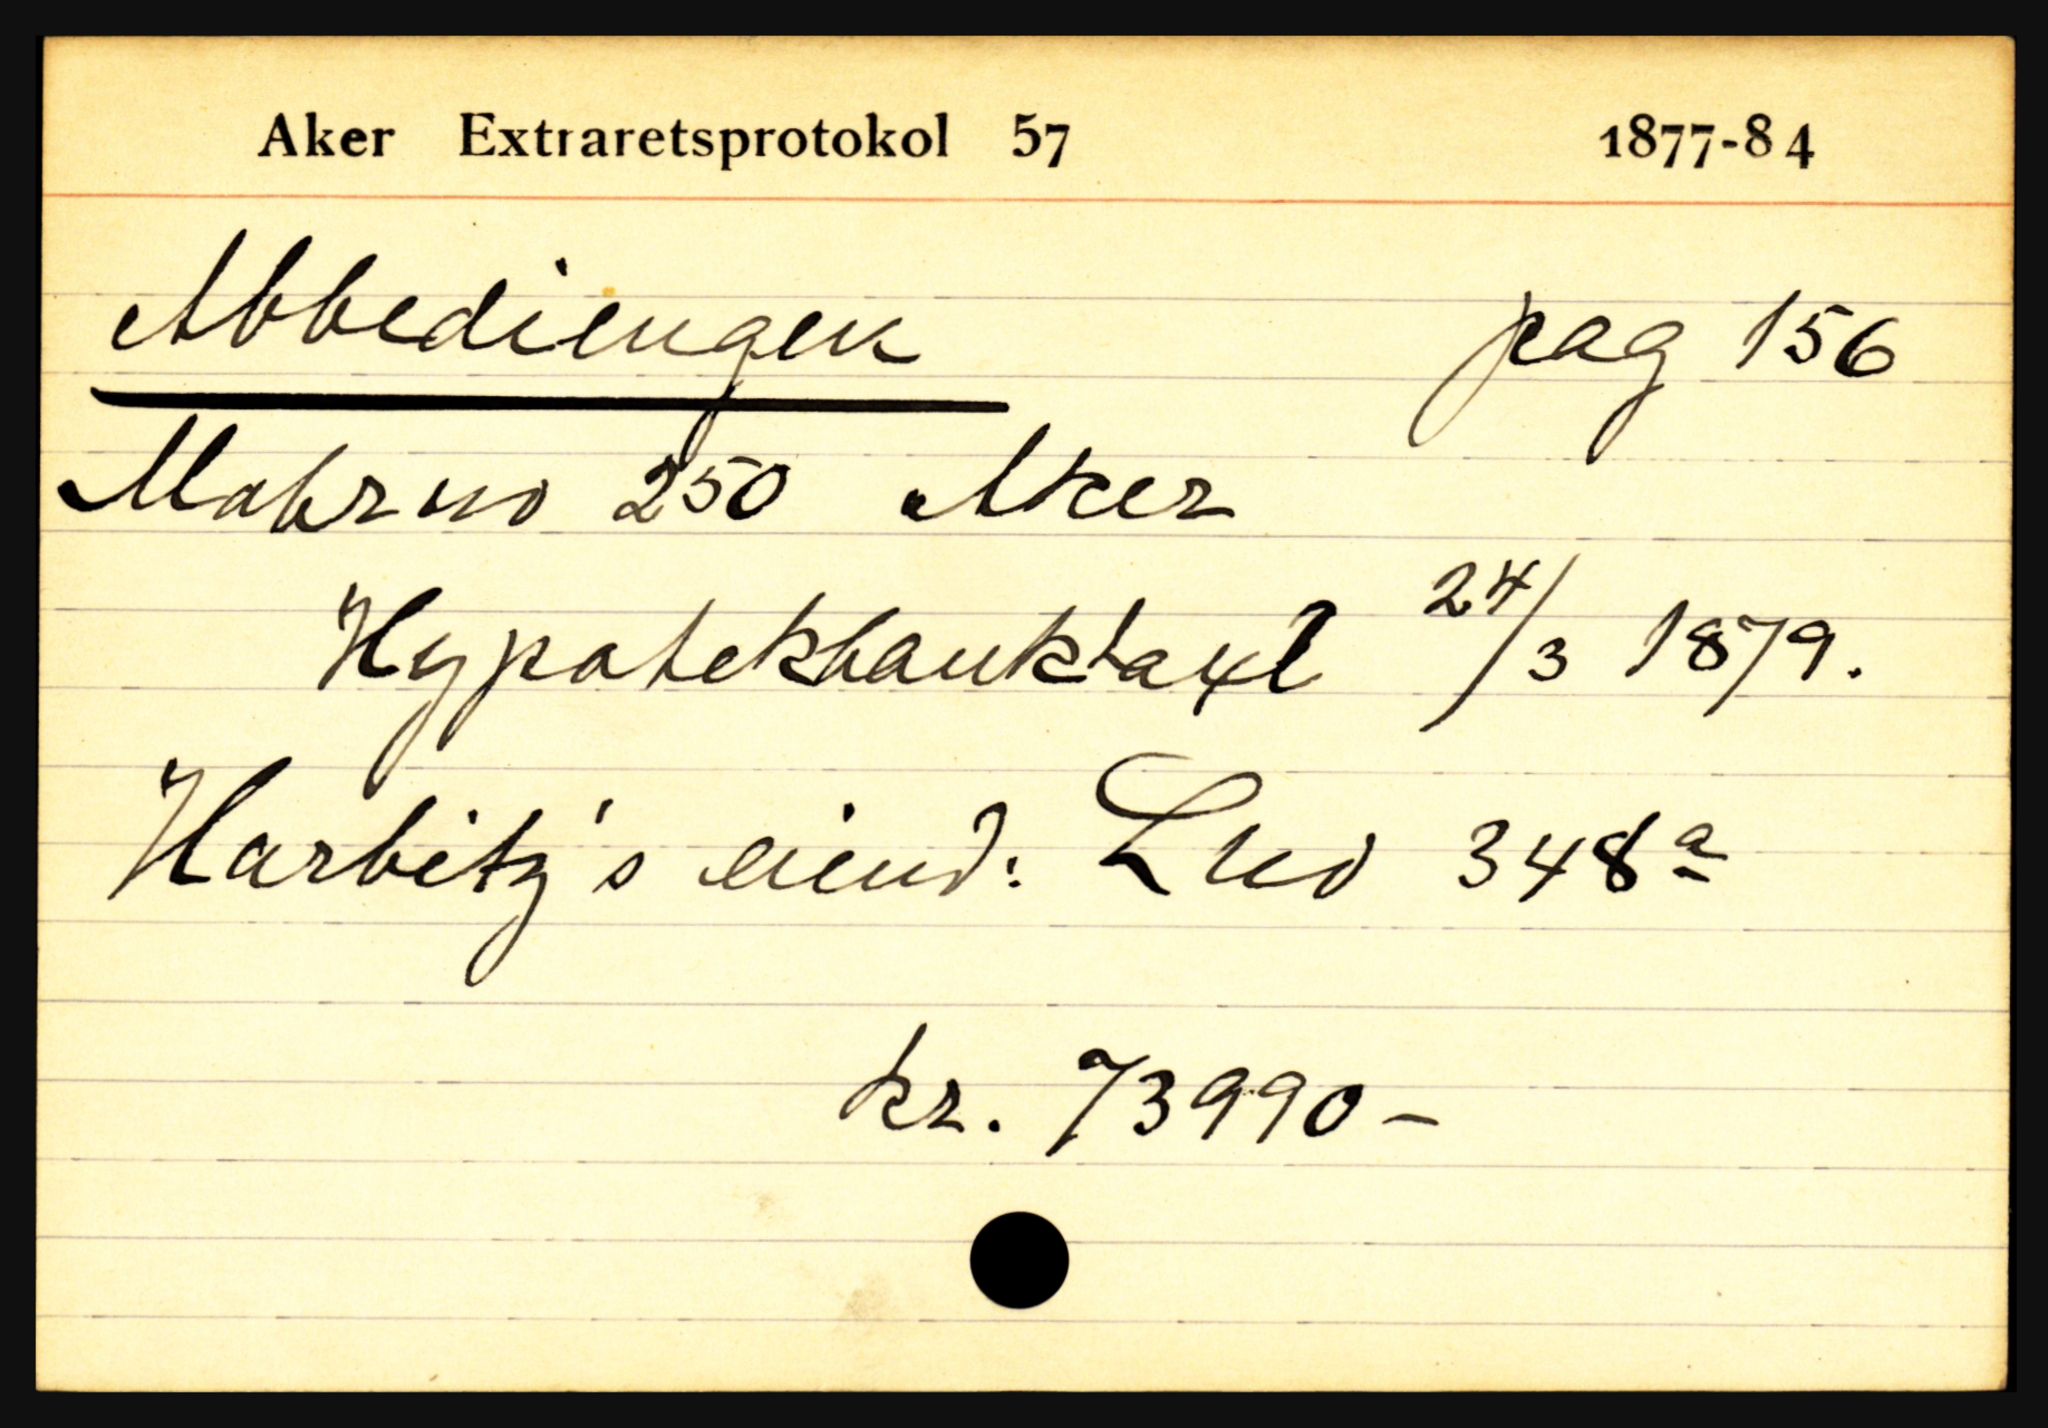 Aker Extraretsprotokol 57 1877-84
Abbediengen pag 156
Matr no 250 Aker
Hypotekbanktaxt 24/3 1879.
Harbitz's eiend: Lno 348a
kr. 73990-